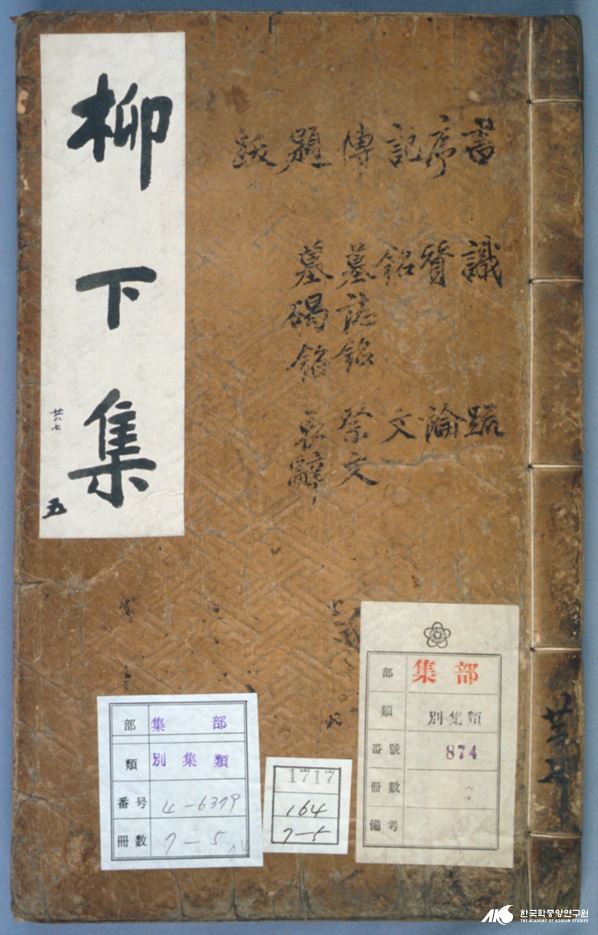 書 識 疏
序 贊 論
記 銘 文
傳 墓誌銘 祭文
題 墓碣銘 哀辭
跋
柳下集
共七
五
共七
部 集部
類 別集類
番號 874
冊數
備考
1717
164
7-5
部 集部
類 別集類
番号 4-6379
冊数 7-5
AKS 한국학중앙연구원
THE ACADEMY OF KOREAN STUDIES